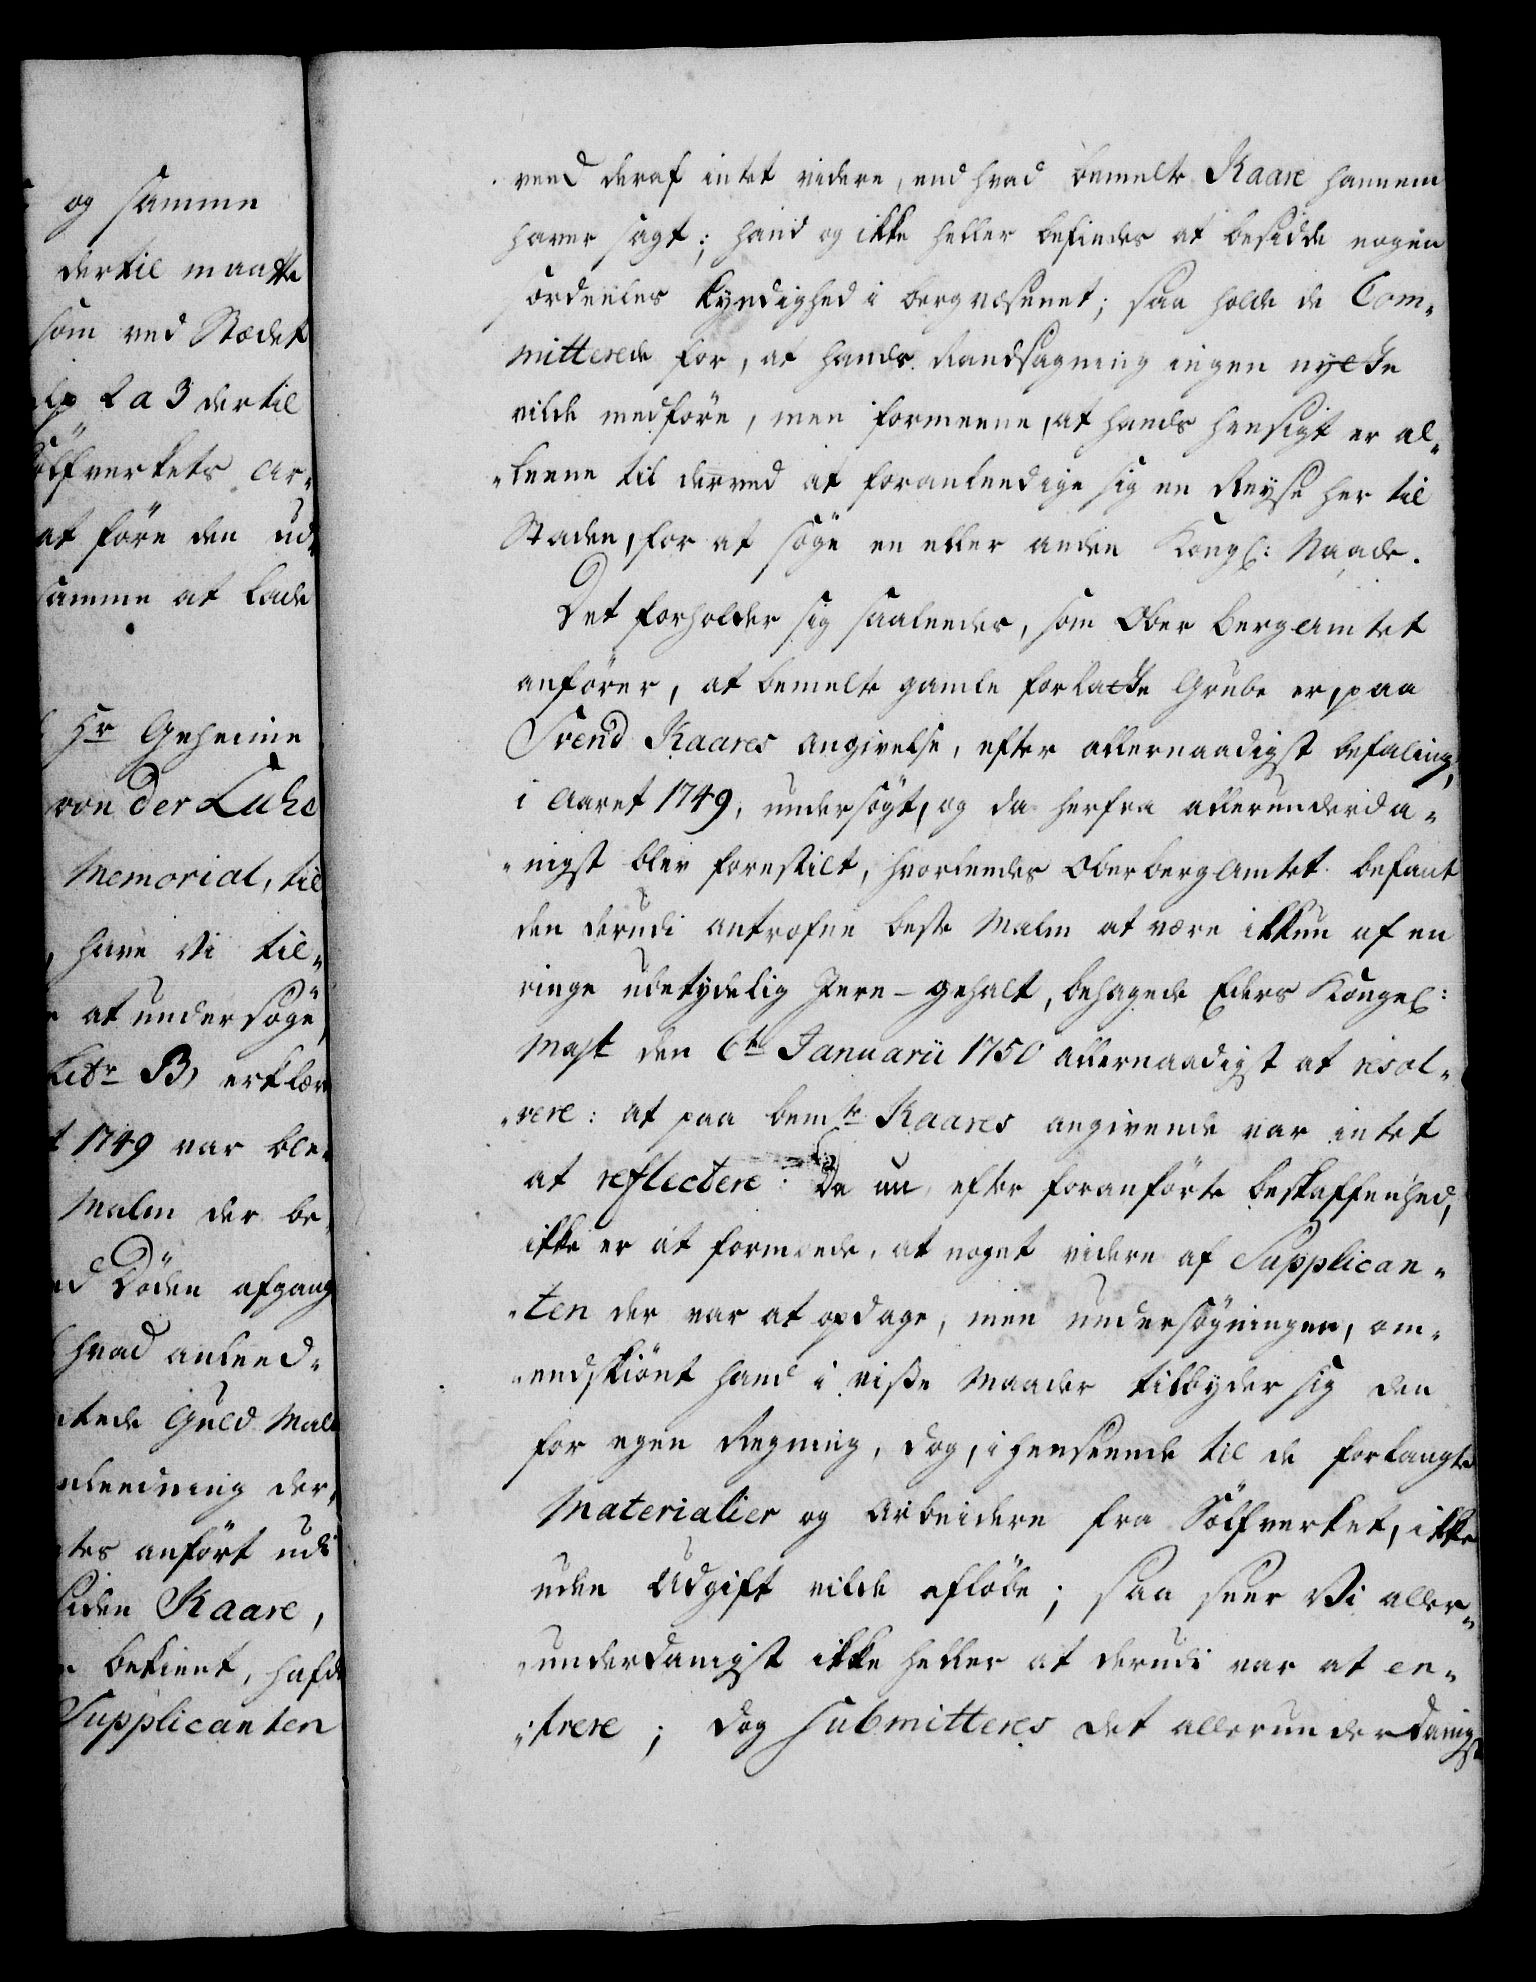 og samme
dertil maatte
som ved Stædet
2 a 3 dertil
Sölfverkets Ar-
at före den ud-
samme at lade
Hr Geheime
von der Lühe
Memorial, til
have Vi til-
at undersöge,
Litr B, erklær
1749 var ble-
Malm der be-
Döden afgang
hvad anleed-
Guld Malm
anleedning der-
anfört udi
liden Kaare,
bekient, hafde
Supplicanten
veed deraf intet videre, end hvad bemelte Kaare hannem
haver sagt; hand og ikke heller befindes at besidde nogen
særdeeles kyndighed i bergvæsenet; saa holde de Com-
mitterede for, at hands Randsagning ingen nytte
vilde medföre, men formeene, at hands hensigt er al-
-leene til derved at foranleedige sig en Reyse her til
Staden, for at söge en eller anden Kongl: Naade.
Det forholder sig saaleedes, som Ober Berg Amtet
anförer, at bemelte gamle forladte Grube er, paa
Svend Kaares angivelse, efter allernaadigst befaling,
i Aaret 1749, undersögt, og da herfra allerunderda-
-nigst blev forestilt, hvorleedes Ober berg Amtet befant
den derudi antrofne beste Malm at være ikkun af en
ringe udetydelig Jern-gehalt, behagede Eders Kongel:
Mayt den 6te Januarii 1750 allernaadigst at resol-
-vere: at paa bemte Kaares angivende var intet
at reflectere: Da nu, efter foranförte beskaffenhed,
ikke er at formode, at noget videre af Supplican-
-ten der var at opdage, men undersögningen, om-
-endskiönt hand i visse Maader tilbyder sig den
for egen Regning, dog, i henseende til de forlangte
Materialier og Arbeidere fra Sölfverket, ikke
uden Udgift vilde aflöbe; saa seer Vi aller-
-underdanigst ikke heller at derudi var at en-
-trere; dog submitteres det allerunderdanigst